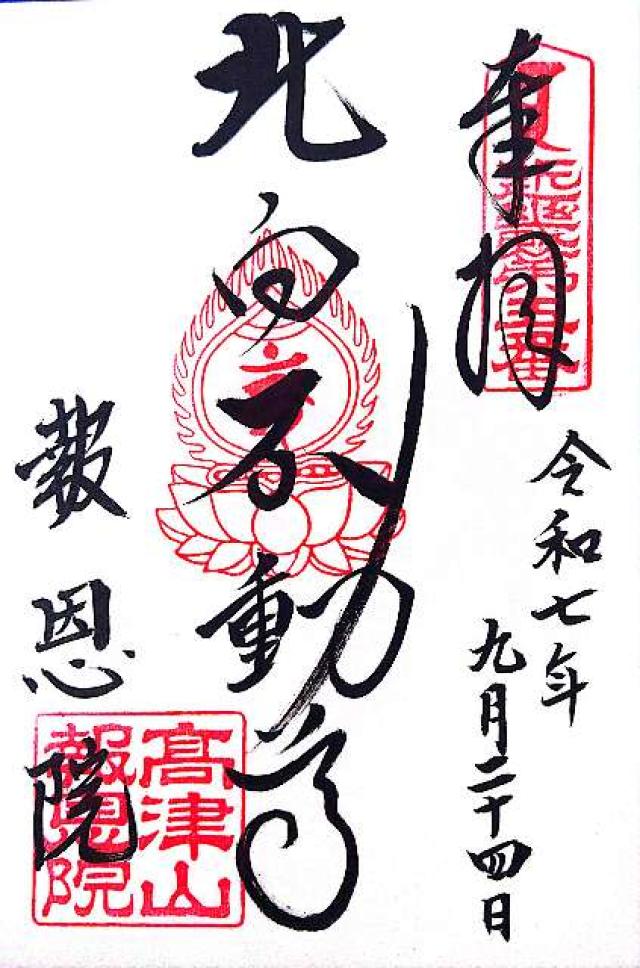 奉拝
令和七年
九月二十四日
北向不動尊
報恩院
高津山
報恩院